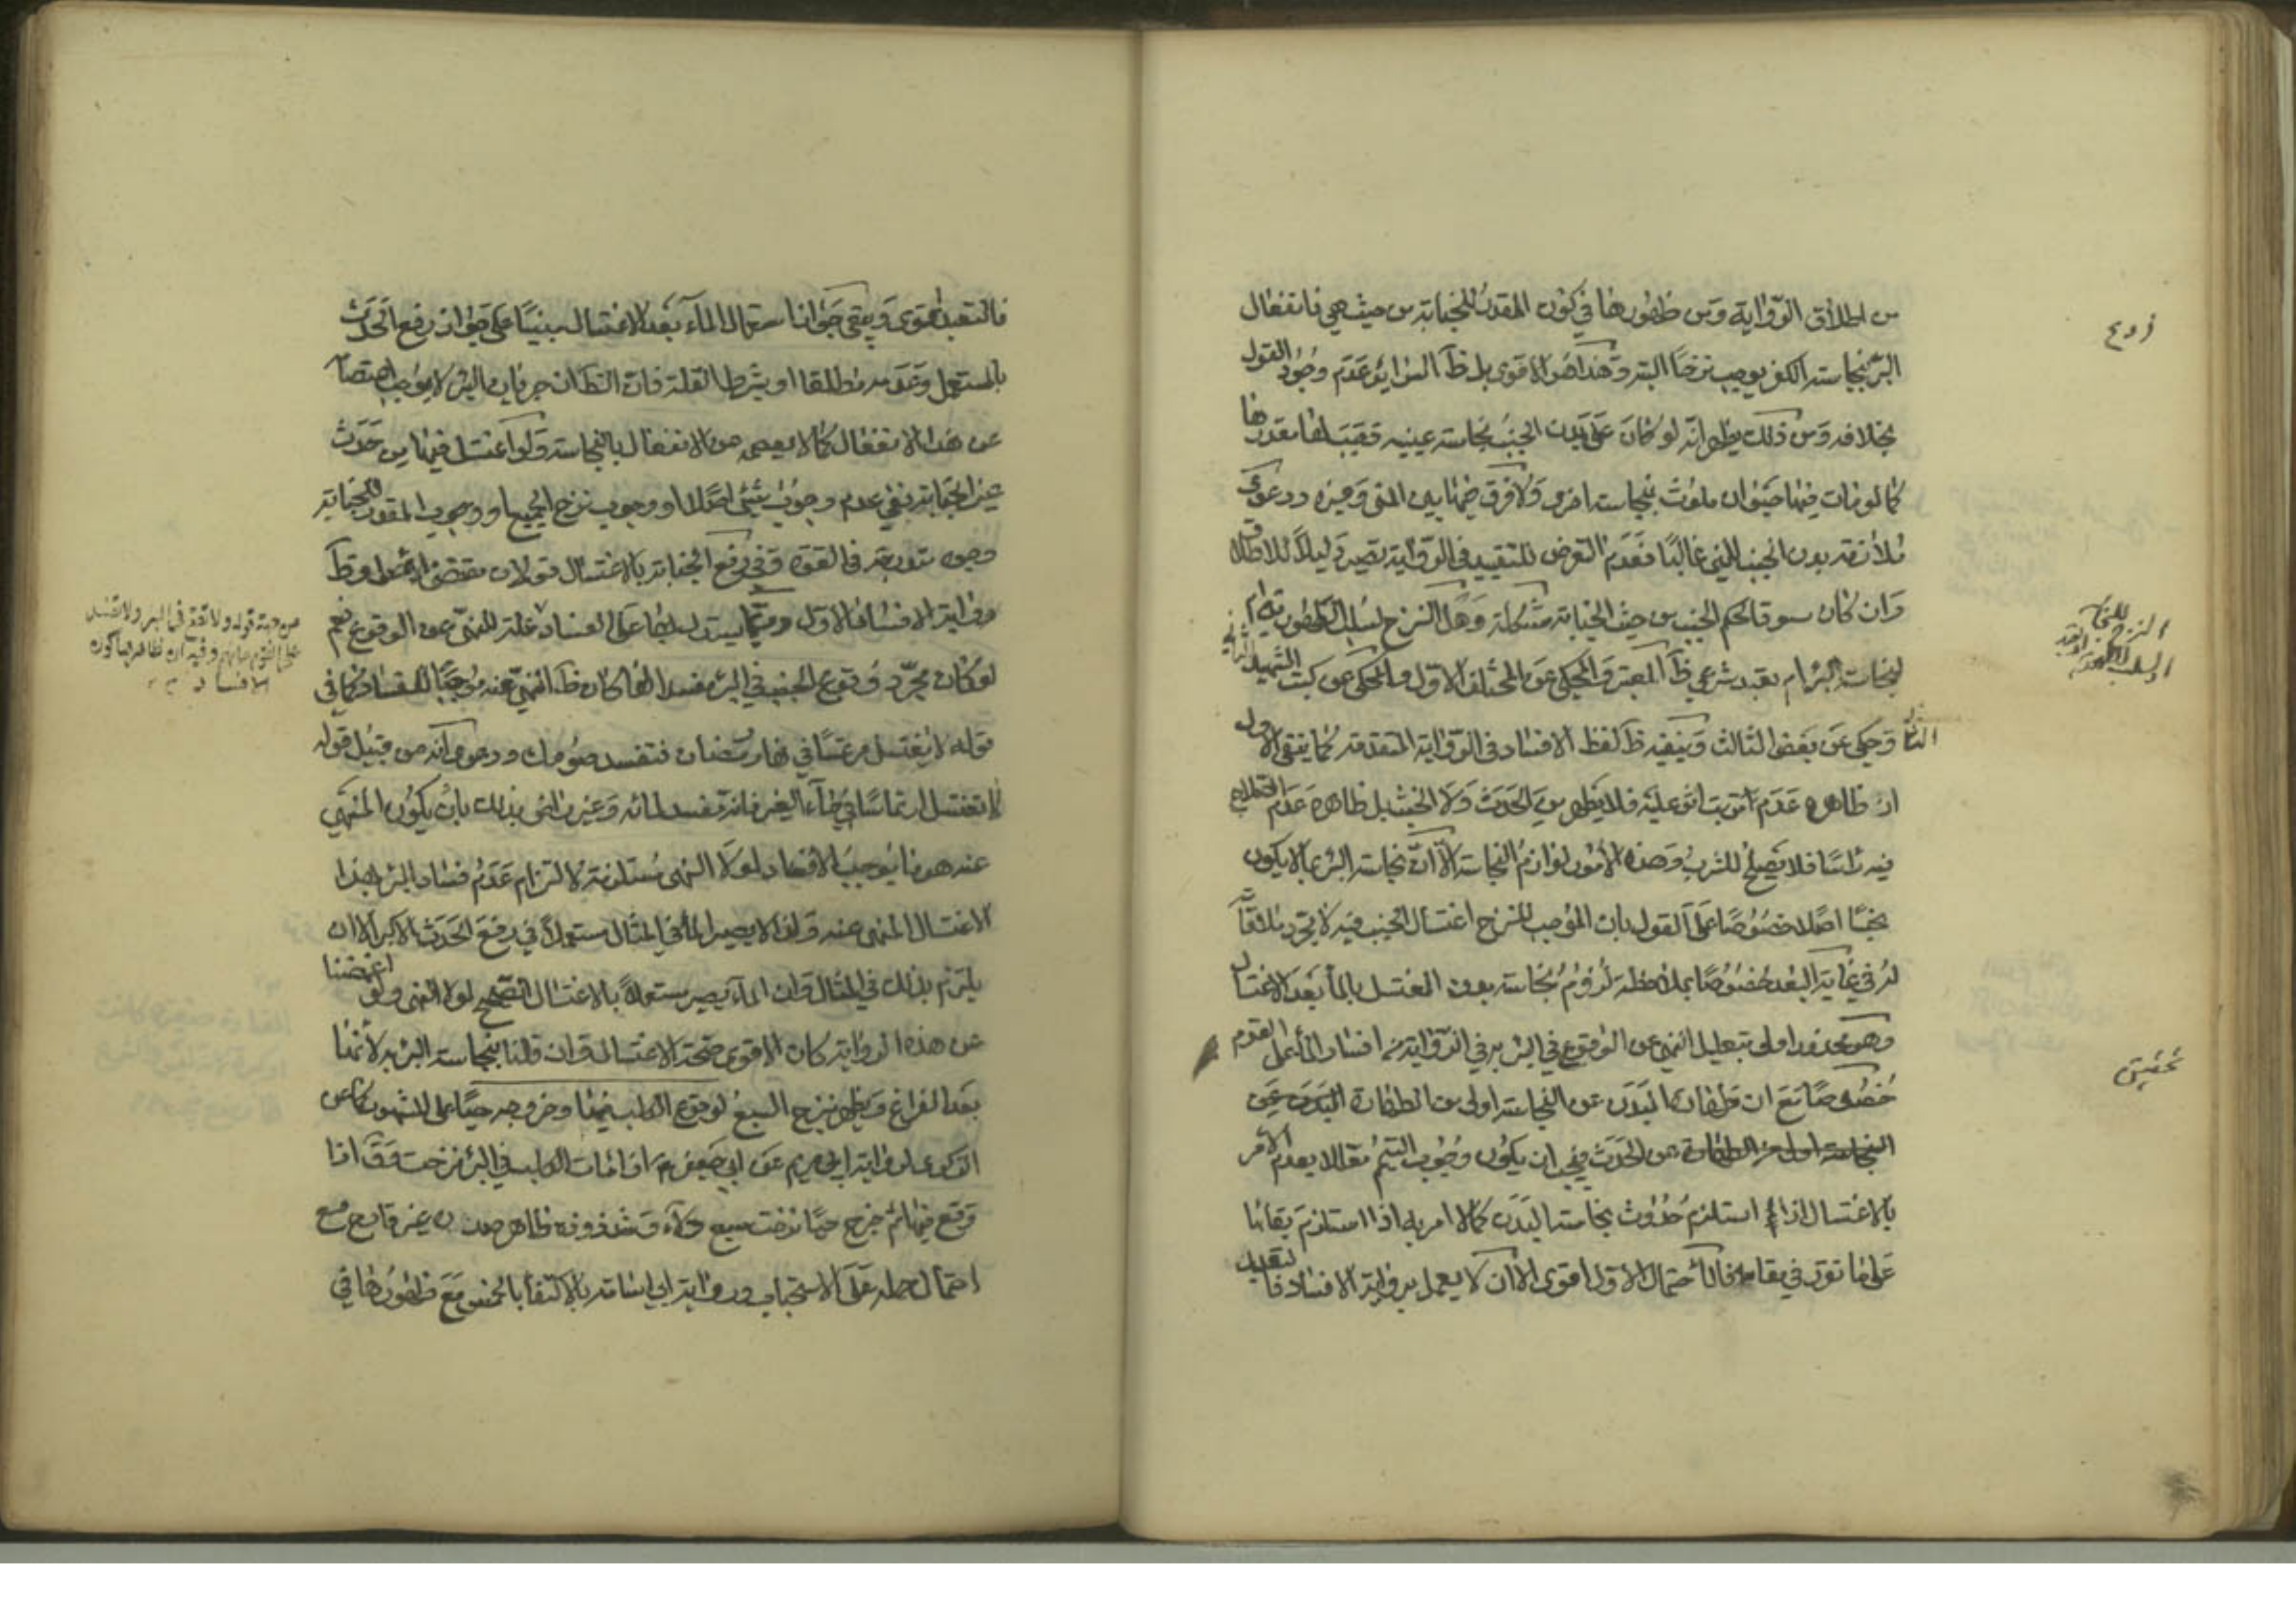 من اطلاق الرواية ومن ظهورها في كون المقدر للجنابة من حيث هي فانفعال
البئر بنجاسة الكفر يوجب نزحا البتة وهذا هو الاقوى بل ظ السرائر عدم وجود القول
بخلافه ومن ذلك يظهر انه لو كان على بدن الجنب نجاسة عينية فيجب لها مقدرها
كما لو مات فيها حيوان ملوث بنجاسة اخرى ولا فرق فيها بين المنى وغيره ودعوى
ملازمة بدن الجنب للمنى غالبا فعدم التعرض للتقييد في الرواية يصير دليلا للاطلاق
وان كان سوق الحكم الجنب من حيث الجنابة مشكلة وهل النزح لسلب الطهورية ام
لنجاسة البئر ام تعبد شرعي ظ المعتبر والمحكى عن المختلف الاول والمحكى عن كتب الشهيد الثاني
الثاني وحكى عن بعض الثالث وينفيه ظ لفظ الافساد في الرواية المتقدمة كما ينفى الاول
ان ظاهره عدم ترتب اثر عليه فلا يطهر من الحدث ولا الخبث بل ظاهره عدم الصلاح
فيه راسا فلا يصلح للشرب وهذه الامور لوازم النجاسة الا ان نجاسة البئر بما لا يكون
نجسا اصلا خصوصا على القول بان الموجب للنزح اغتسال الجنب فيه لا مجرد ملاقاته
له في غاية البعد خصوصا بملاحظة لزوم نجاسة بدن المغتسل بالماء بعد الاغتسال
وهو محذور اولى بتعليل النهى عن الوقوع في البئر في الرواية من افساد الماء على القوم
خصوصا مع ان طهارة البدن عن النجاسة اولى من الطهارة البدن عن
النجاسة اولى من الطهارة عن الحدث فيجب ان يكون وجوب التيمم معللا بعدم الامر
بالاغتسال اذا استلزم حدوث نجاسة البدن كما لا امر به اذا استلزم بقائها
على ما تقرر في مقامه فالاحتمال الاول اقوى الا ان لا يعمل برواية الافساد فا لتعبد
النزح للجنا
لسلب الطهورية
تحقيق
فالتعبد اقوى ويبقى جواز استعمال الماء بعد الاغتسال مبنيا على جواز رفع الحدث
بالمستعمل وعدمه مطلقا او بشرط القلة فان الظ ان جريان البئر لا يوجب اعتصامه
عن هذا الانفعال كما لا يعصمه من الانفعال بالنجاسة ولو اغتسل فيها من حدث
غير الجنابة ففي عدم وجوب شئ اصلا او وجوب نزح الجميع او وجوب المقدر للجنابة
وجوه متدرجة في القوة وفي رفع الجنابة بالاغتسال قولان مقتضى الاصل وظ
رواية الافساد الاول وربما يستدل ايضا على الفساد علة للنهى عن الوقوع نعم
لو كان مجرد وقوع الجنب في البئر مفسدا لها كان ظ النهى عنه موجبا للفساد كما في
قوله لا يغتسل مرتمسا في نهار رمضان فتفسد صومك ودعوى انه من قبيل قوله
لا تغتسل ارتماسا في ماء الغير فانه مفسد لمائه وغير النهى بذلك بان يكون المنهى
عنه هو ما يوجب الافساد لولا النهى مستلزمة لالتزام عدم فساد البئر بهذا
الاغتسال المنهى عنه ولذا لا يصير الماء في المثال مستعملا في رفع الحدث الاكبر الا ان
يلتزم بذلك في المثال وان الماء يصير مستعملا بالاغتسال الصحيح لولا النهى ولو اغمضنا
عن هذه الرواية كان الاقوى صحة الاغتسال وان قلنا بنجاسة البئر به لانها
بعد الفراغ ويطهر بنزح السبع لوقوع الكلب فيها وخروجه حيا على المشهور كما عن
الذكرى لرواية ابي مريم عن ابي جعفر ع اذا مات الكلب في البئر نزحت وق اذا
وقع فيها ثم خرج حيا نزحت سبع دلاء وشذوذه ظاهر غير قادح مع
احتمال حمله على الاستحباب ورواية ابي اسامة بالاكتفاء بالخمس مع ظهورها في
من جهة قوله ولا تقع في البئر ولا تفسد
على القوم مائهم وفيه ان ظاهرها كونه
الافساد